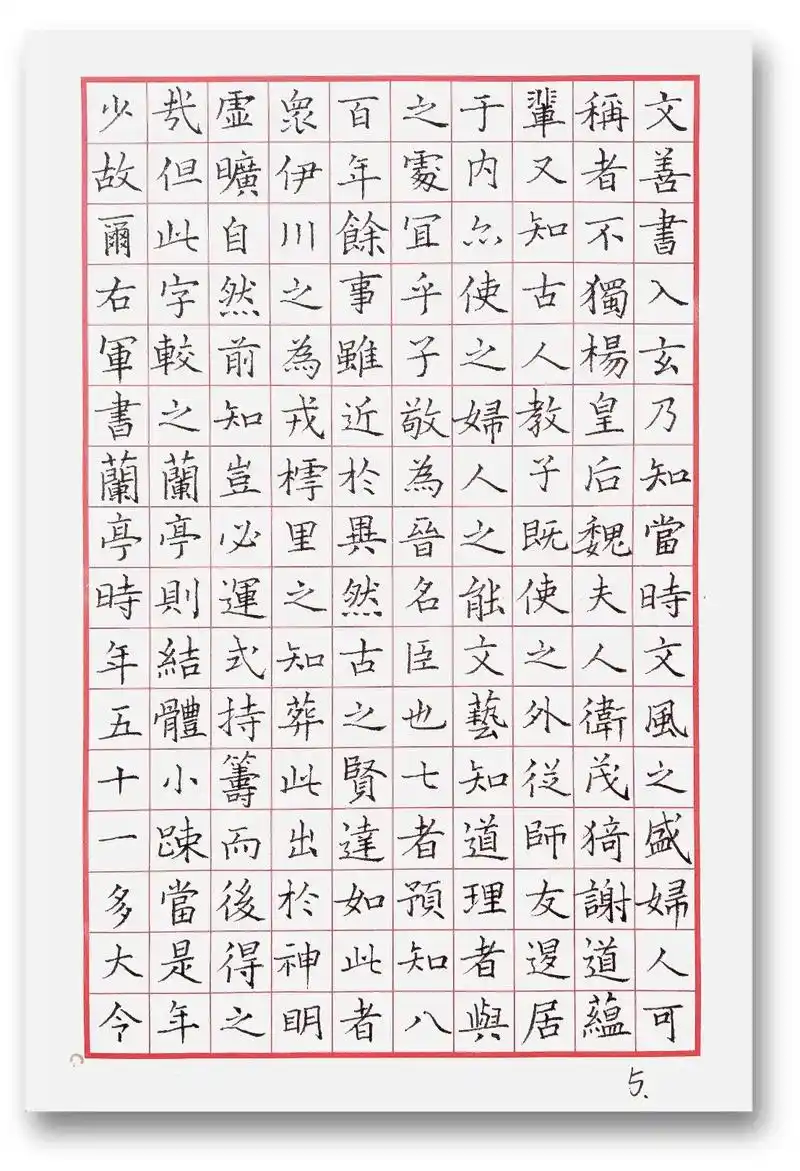 文善書入玄乃知當時文風之盛婦人可
稱者不獨楊皇后魏夫人衛茂猗謝道蘊
輩又知古人教子既使之外從師友退居
于内亦使之婦人之能文藝知道理者與
之處宜乎子敬為晉名臣也七者預知八
百年餘事雖近於異然古之賢達如此者
衆伊川之為戎樗里之知葬此出於神明
虛曠自然前知豈必運式持籌而後得之
㢤但此字較之蘭亭則結體小踈當是年
少故爾右軍書蘭亭時年五十一多大令
5.